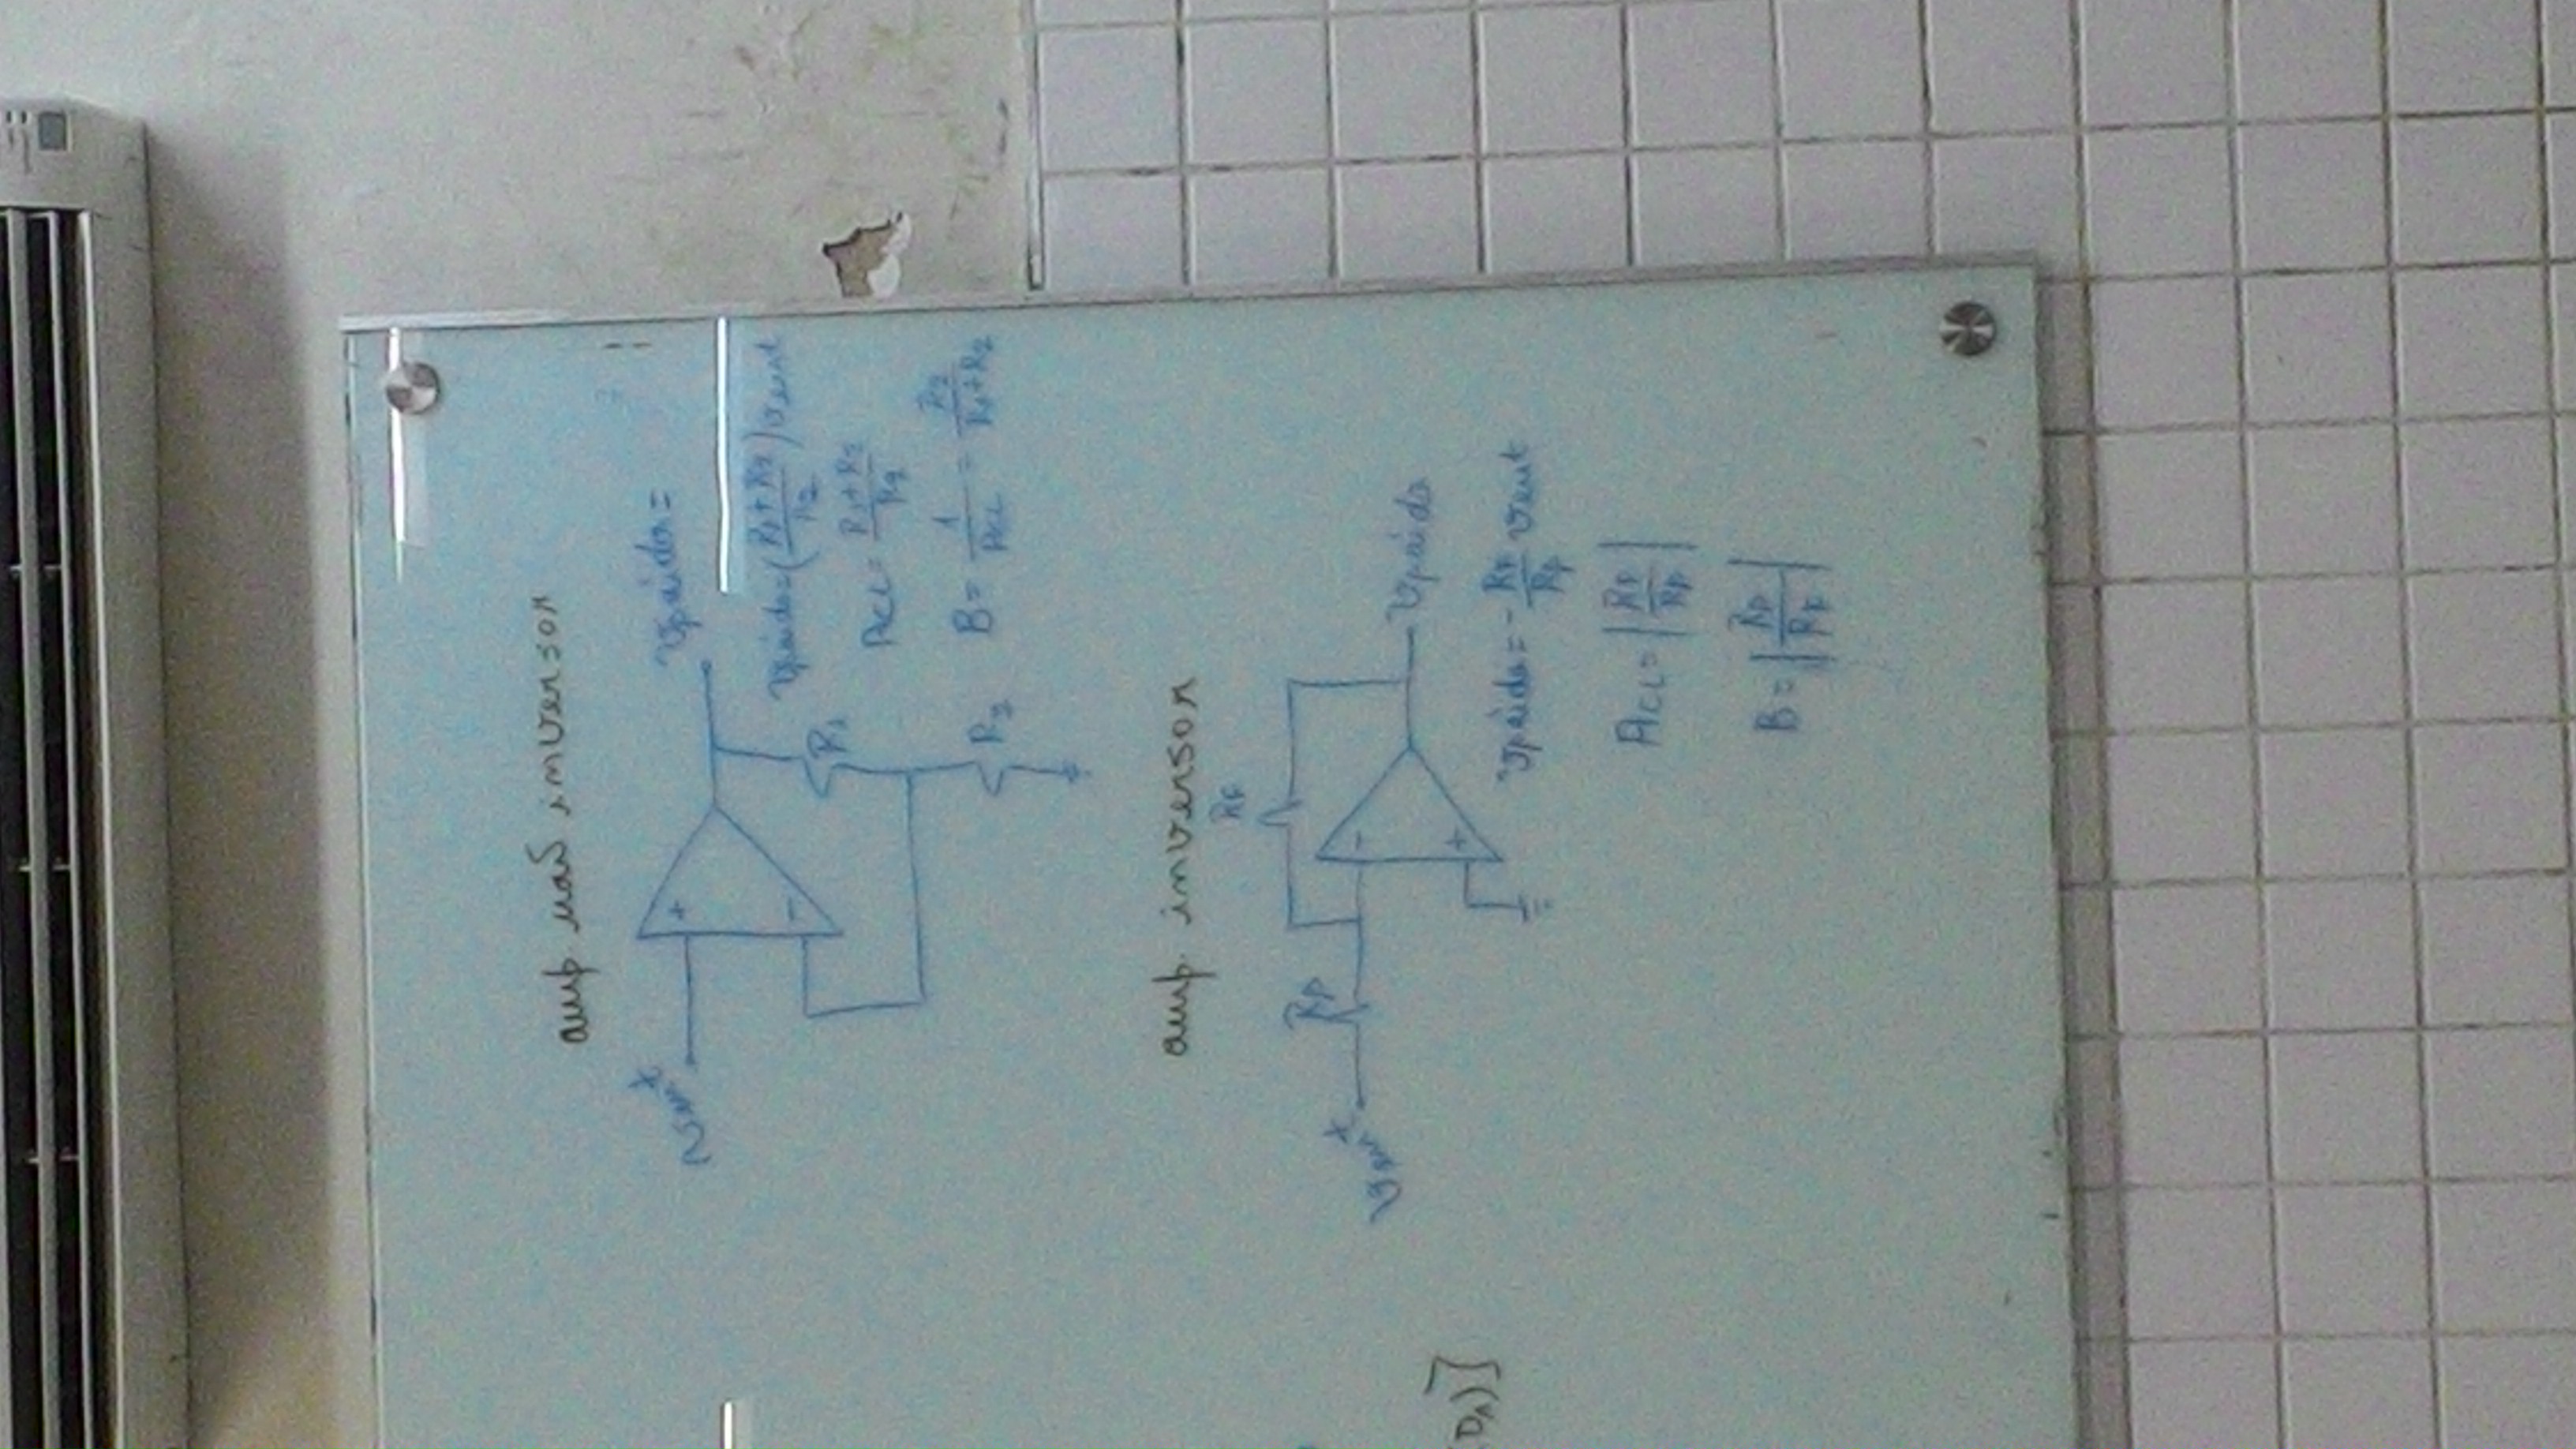 amp não inversor
vent
+
vsaída =
-
R1
vsaída = (R1 + R2 / R2) vent
ACL = R1 + R2 / R2
R2
B = 1 / ACL = R2 / R1 + R2
amp. inversor
RF
Rp
vent
-
+
vsaída
vsaída = - RF / Rp vent
ACL = | RF / Rp |
B = | Rp / RF |